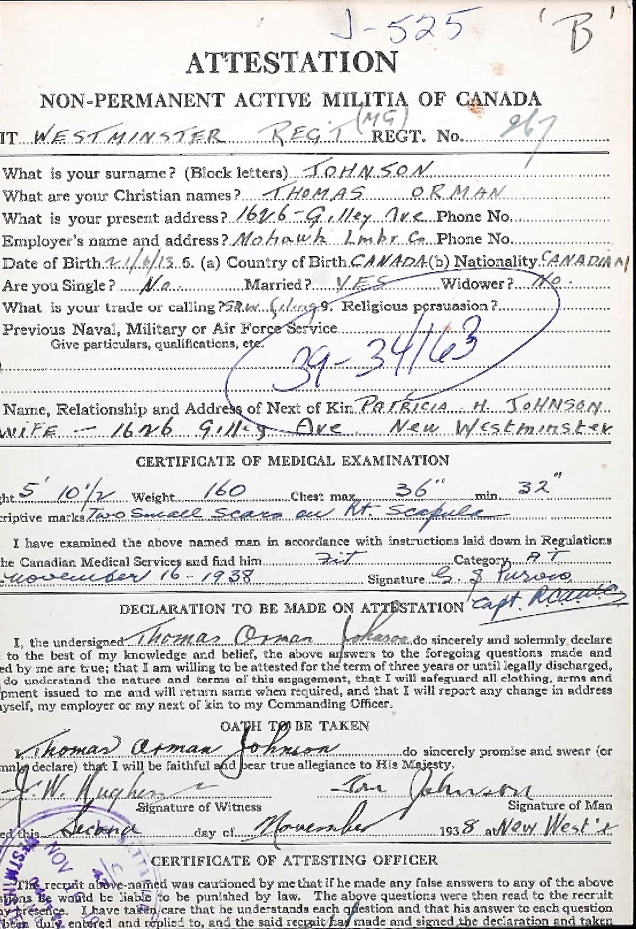 J-525 'B'
ATTESTATION
NON-PERMANENT ACTIVE MILITIA OF CANADA
IT WESTMINSTER REG'T (MG) REGT. No. 267
What is your surname? (Block letters) JOHNSON
What are your Christian names? THOMAS ORMAN
What is your present address? 1626-Gilley Ave Phone No.
Employer's name and address? Mohawk Lmbr Co Phone No.
Date of Birth 21/6/13 6. (a) Country of Birth CANADA (b) Nationality CANADIAN
Are you Single? No. Married? YES Widower? No.
What is your trade or calling? Saw filing 9. Religious persuasion?
Previous Naval, Military or Air Force Service
Give particulars, qualifications, etc.
39-34163
Name, Relationship and Address of Next of Kin PATRICIA H. JOHNSON
WIFE - 1626 Gilley Ave New Westminster
CERTIFICATE OF MEDICAL EXAMINATION
ght 5' 10 1/2 Weight 160 Chest max. 36" min. 32"
criptive marks Two Small Scars on Rt. Scapula
I have examined the above named man in accordance with instructions laid down in Regulations
the Canadian Medical Services and find him Fit Category A1
November 16-1938 Signature G. J.
Capt. RCAMC
DECLARATION TO BE MADE ON ATTESTATION
I, the undersigned Thomas Orman Johnson do sincerely and solemnly declare
to the best of my knowledge and belief, the above answers to the foregoing questions made and
ed by me are true; that I am willing to be attested for the term of three years or until legally discharged,
do understand the nature and terms of this engagement, that I will safeguard all clothing, arms and
pment issued to me and will return same when required, and that I will report any change in address
yself, my employer or my next of kin to my Commanding Officer.
OATH TO BE TAKEN
Thomas Orman Johnson do sincerely promise and swear (or
mnly declare) that I will be faithful and bear true allegiance to His Majesty.
J. W. Hughes Tom Johnson
Signature of Witness Signature of Man
ed this Second day of November 1938 at New West'r
CERTIFICATE OF ATTESTING OFFICER
The recruit above-named was cautioned by me that if he made any false answers to any of the above
stions he would be liable to be punished by law. The above questions were then read to the recruit
ny presence. I have taken care that he understands each question and that his answer to each question
been duly entered and replied to, and the said recruit has made and signed the declaration and taken